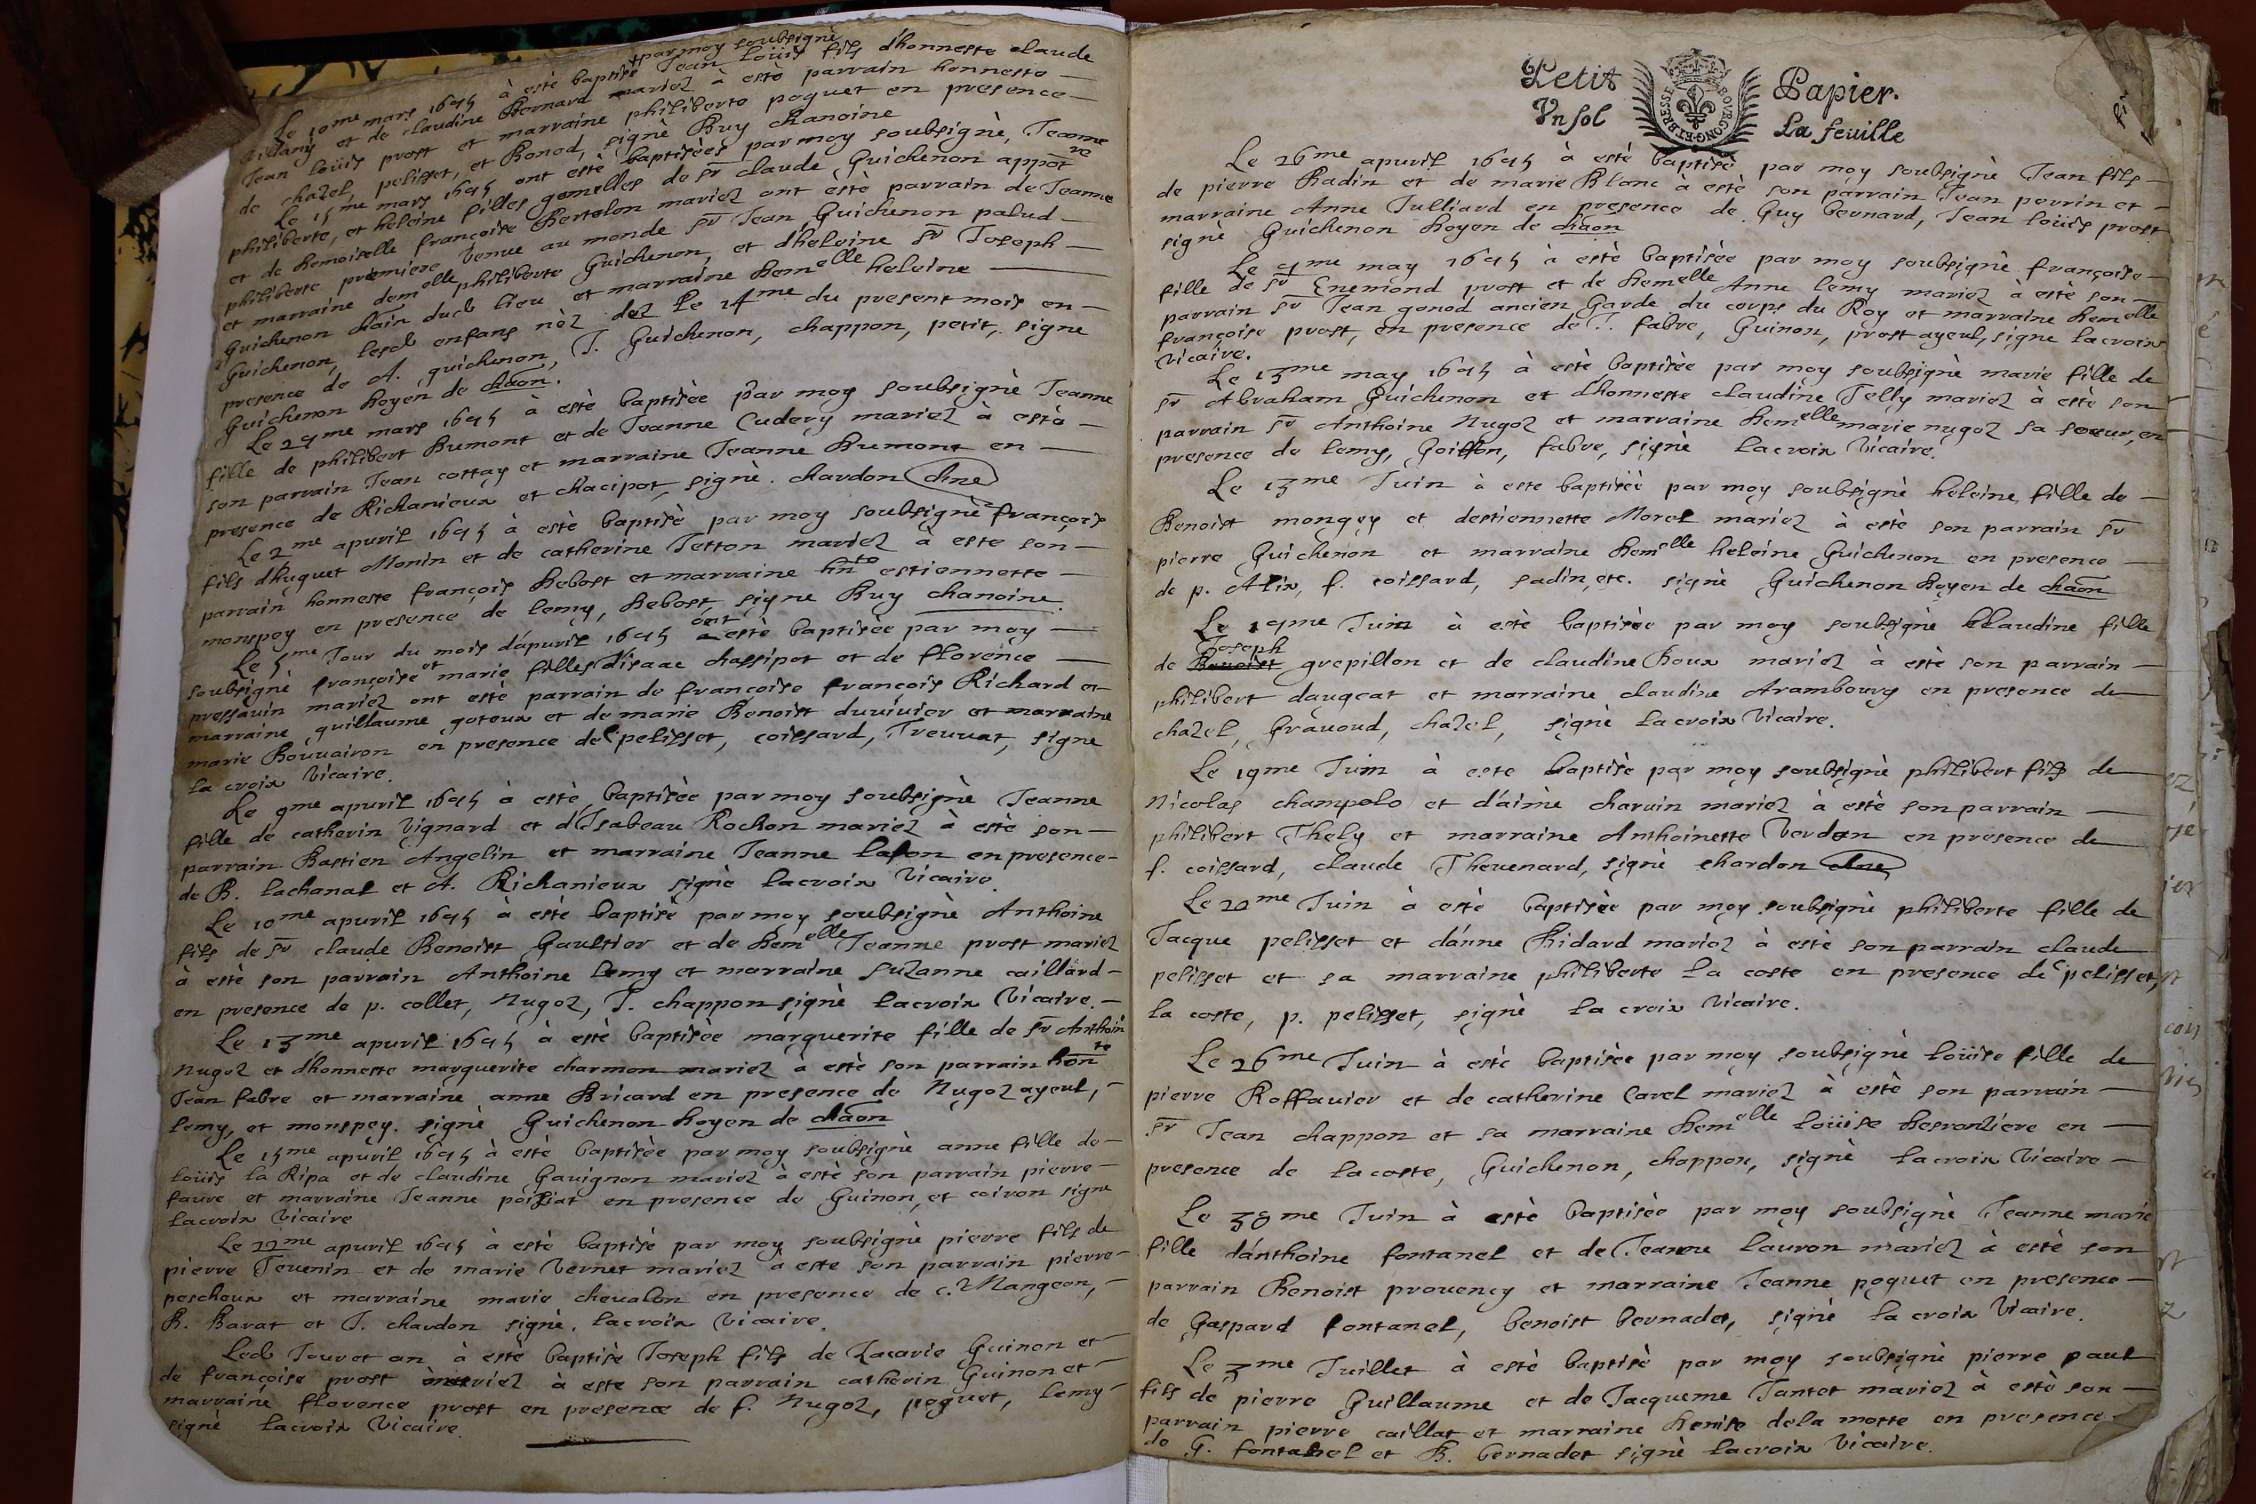 par moy soubsignè
Le 10me mars 1695 à estè baptisè Jean Loüis fils d'honneste claude
et de claudine Bernard mariez à estè parrain honneste
Jean Loüis prost et marraine philiberte poquet en presence
de chazel, pelisset, et Bonod, signè Buy chanoine
Le 15me mars 1695 ont estè baptisées par moy soubsignè, Jeanne
philiberte, et heleine filles gemelles de sr claude Guichenon appotre
et de Demoiselle françoise Bertelon mariez ont estè parrain de Jeanne
philiberte premiere venue au monde sr Jean Guichenon palud
et marraine demelle philiberte Guichenon, et d'heleine sr Joseph
Guichenon chãin dud lieu et marraine Demelle heleine
Guichenon, lesd enfans nèz dez le 14me du present mois en
presence de A. guichenon, J. Guichenon, chappon, petit, signe
Guichenon Doyen de chãon.
Le 29me mars 1695 à estè baptisèe par moy soubsignè Jeanne
fille de philibert Dumont et de Jeanne Cudery mariez à estè
son parrain Jean cottay et marraine Jeanne Dumont en
presence de Richanieux et chacipot, signè. chardon chne
Le 2me apuril 1695 à estè baptisè par moy soubsignè françois
fils d'huguet Monin et de catherine Tetton mariez à este son
parrain honneste françois Debost et marraine hnte estiennette
monspey en presence de lemy, Debost, signe Buy chanoine.
Le 5me Jour du mois d'apuril 1695 ont estè baptisèe par moy
soubsignè françoise et marie filles d'isaac chassipot et de florence
pressauin mariez ont estè parrain de françoise françois Richard et
marraine guillaume goteux et de marie Benoist duuiuier et marraine
marie Bouuairon en presence de C pelisset, coissard, Treuuat, signe
la croix vicaire.
Le 9me apuril 1695 à estè baptisèe par moy soubsignè Jeanne
fille de catherin Vignard et d'Isabeau Rochon mariez à estè son
parrain Bastien Angelin et marraine Jeanne lafon en presence
de B. lachanal et A. Richanieux signè lacroix vicaire.
Le 10me apuril 1695 à estè baptisè par moy soubsignè Anthoine
fils de sr claude Benoist Gaultier et de Demelle Jeanne prost mariez
à estè son parrain Anthoine lemy et marraine Suzanne caillard
en presence de p. collet, Nugoz, J. chappon signè lacroix vicaire.
Le 13me apuril 1695 à estè baptisèe marguerite fille de sr Anthoin
Nugoz et d'honneste marguerite charmon mariez a estè son parrain honte
Jean fabre et marraine anne Bricard en presence de Nugoz ayeul,
lemy, et monspey. signè Guichenon Doyen de chãon
Le 15me apuril 1695 à estè baptisèe par moy soubsignè anne fille de
Loüis la Ripa et de claudine Gauignon mariez à estè son parrain pierre
faure et marraine Jeanne poissiat en presence de Guinon, et coiron signe
lacroix vicaire
Le 22me apuril 1695 à estè baptisè par moy soubsignè pierre fils de
pierre Teuenin et de marie Vernet mariez a este son parrain pierre
pescheux et marraine marie cheualon en presence de c. Mangeon,
B. Barat et J. chardon signè. lacroix vicaire.
Led Jour et an à estè baptisè Joseph fils de Zacarie Guinon et
de françoise prost mariez à este son parrain catherin Guinon et
marraine florence prost en presence de f. Nugoz, poquet, lemy
signè lacroix vicaire.
Petit Papier.
Vn sol La feuille
BOVRGONG ET BRESSE
Le 26me apuril 1695 à estè baptisè par moy soubsignè Jean fils
de pierre Radin et de marie Blanc a estè son parrain Jean perrin et
marraine Anne Julliard en presence de Guy bernard, Jean loüis prost
signè Guichenon Doyen de chãon
Le 9me may 1695 à estè baptisèe par moy soubsignè françoise
fille de sr Enemond prost et de Demelle Anne lemy mariez à estè son
parrain sr Jean gonod ancien Garde du corps du Roy et marraine Demelle
françoise prost, en presence de J. fabre, Guinon, prost ayeul, signe lacroix
vicaire.
Le 13me may 1695 à estè baptisèe par moy soubsignè marie fille de
sr Abraham Guichenon et d'honneste claudine Telly mariez à estè son
parrain sr Anthoine Nugoz et marraine Demelle marie nugoz sa soeur, en
presence de lemy, Goiffon, fabre, signè lacroix vicaire.
Le 13me Juin à este baptisèe par moy soubsignè heleine fille de
Benoist mongey et destiennette Morel mariez à estè son parrain sr
pierre Guichenon et marraine Demelle heleine Guichenon en presence
de p. Alix, f. coissard, sadin, etc. signè Guichenon Doyen de chãon
Le 19me Juin à estè baptisèe par moy soubsignè claudine fille
Joseph
de Benoist grepillon et de claudine Boux mariez à estè son parrain
philibert daugeat et marraine claudine Arambourg en presence de
chazel, Gràuoud, chazel, signè lacroix vicaire.
Le 19me Juin à este baptisè par moy soubsignè philibert fils de
Nicolas champolo et d'aimè charuin mariez à estè son parrain
philibert Thely et marraine Anthoinette Verdan en presence de
f. coissard, claude Theuenard, signè chardon chne
Le 20me Juin à estè baptisèe par moy soubsignè philiberte fille de
Jacque pelisset et d'anne Ridard mariez à estè son parrain claude
pelisset et sa marraine philiberte la coste en presence de C pelisset,
la coste, p. pelisset, signè la croix vicaire.
Le 26me Juin à estè baptisèe par moy soubsignè loüise fille de
pierre Roffauier et de catherine Carel mariez à estè son parrain
sr Jean chappon et sa marraine Demelle loüise Desronziere en
presence de lacoste, Guichenon, chappon, signè lacroix vicaire
Le 30me Juin à estè baptisèe par moy soubsignè Jeanne marie
fille d'anthoine fontanel et de Jeanne lauron mariez à estè son
parrain Benoist prouency et marraine Jeanne poquet en presence
de Gaspard fontanel, benoist bernadet, signè la croix vicaire.
Le 3me Juillet à estè baptisè par moy soubsignè pierre paul
fils de pierre Guillaume et de Jacqueme Tantet mariez à estè son
parrain pierre caillat et marraine Denise dela motte en presence
de G. fontanel et B. bernadet signè lacroix vicaire.